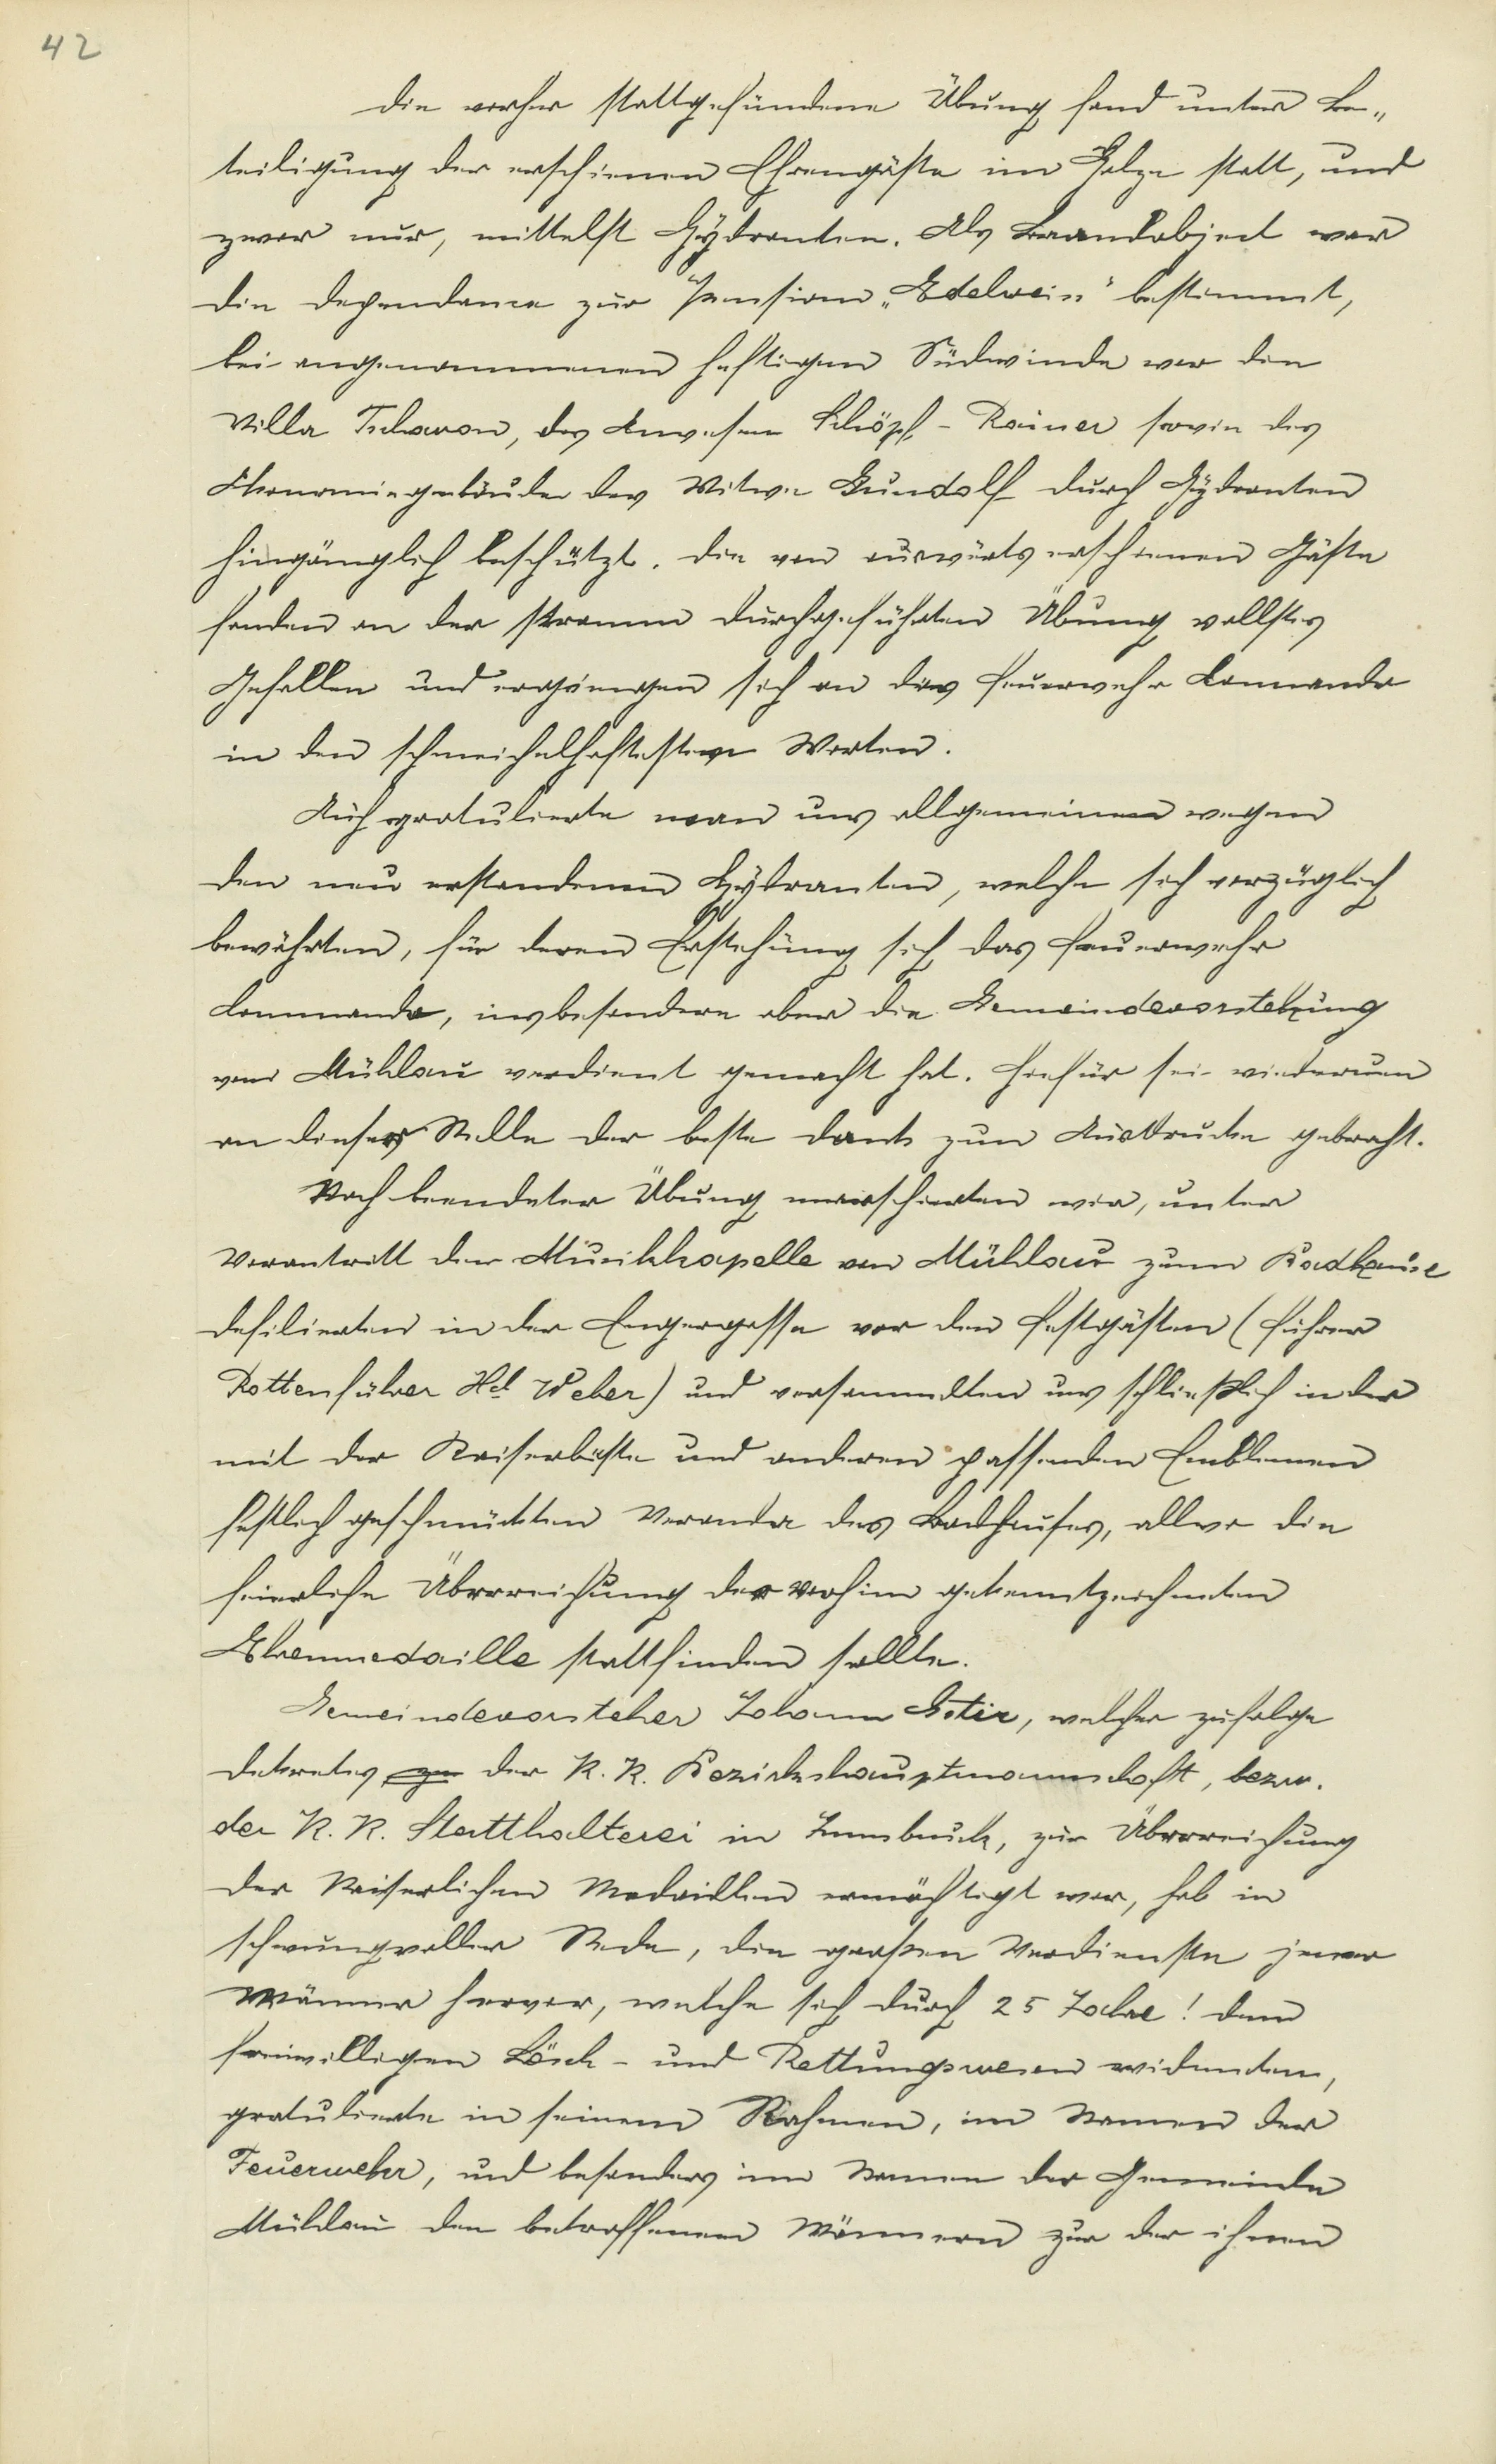 42
Die vorher stattgefundene Übung fand unter Be„
teiligung der erschienen Ehrengäste im Holze statt, und
zwar nur, mittelst Hydranten. Als Brandobject war
die Dependance zur Pension „Edelweis" bestimmt,
bei angenommenen heftigen Südwinde war die
Villa Tschavon, das Anwesen Schöpf - Rainer sowie das
Ökonomiegebäude der Witwe Gundolf durch Hydranten
hingänglich beschützt. Die von auswärts erschienen Gäste
fanden an der stramm durchgeführten Übung vollstes
Gefallen und ergiengen sich an das Feuerwehr Commando
in den schmeichelhaftesten Worten.
Auch gratulierte man uns allgemeinen wegen
den neu erstandenen Hydranten, welche sich vorzüglich
bewährten, für deren Erstehung sich das Feuerwehr
Commando, insbesondere aber die Gemeindevorstehung
von Mühlau verdient gemacht hat. Hiefür sei wiederum
an dieser Stelle der beste Dank zum Ausdrucke gebracht.
Nach beendeter Übung marschierten wir, unter
Vorantritt der Musikkapelle von Mühlau zum Badhause
defilierten in der Engergasse vor den Festgästen (Führer
Rottenführer Hd Weber) und versammelten uns schließlich in der
mit der Kaiserbüste und anderen passenden Emblemen
festlich geschmückten Veranda des Badhauses, allwo die
feierliche Überreichung der vorhin gekenntzeichneten
Ehrenmedaille stattfinden sollte.
Gemeindevorsteher Johann Estir, welcher zufolge
Dekretes der K. K. Bezirkshauptmannschaft, bezw.
der K. K. Statthalterei in Innsbruck, zur Überreichung
der Kaiserlichen Medaillen ermächtigt war, hob in
schwungvoller Rede, die großen Verdienste jener
Männer hervor, welche sich durch 25 Jahre! dem
freiwilligen Lösch - und Rettungswesen widmeten,
gratulierte in seinem Rahmen, im Namen der
Feuerwehr, und besonders im Namen der Gemeinde
Mühlau den betroffenen Männern zur der ihnen